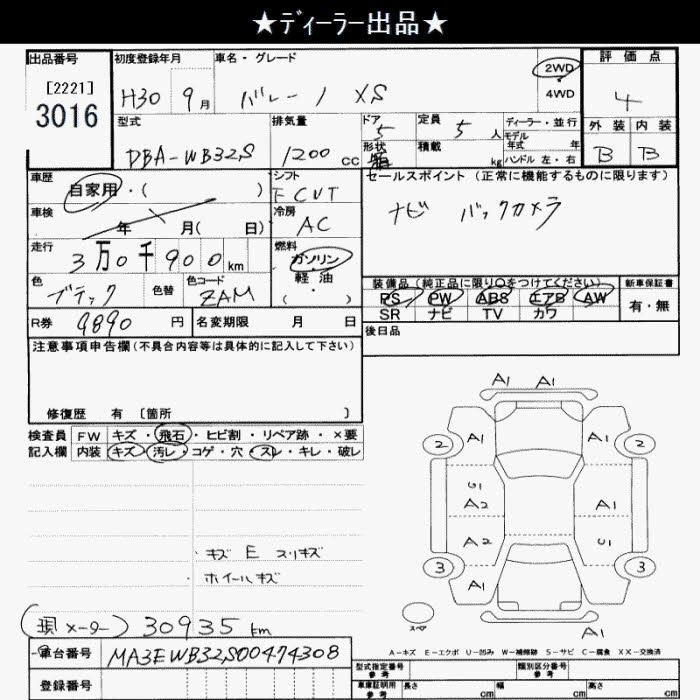 ★ディーラー出品★
出品番号 初度登録年月 車名・グレード 2WD 評価点
[2221] H30 9月 バレーノ XS 4WD 4
3016 型式 排気量 ドア 定員 ディーラー・並行 外装 内装
DBA-WB32S 1200cc 5 5人 モデル年式 年 B B
形状 積載 kg ハンドル 左・右
車歴 シフト セールスポイント (正常に機能するものに限ります)
自家用・( ) FCVT ナビ バックカメラ
車検 冷房
年 月( 日) AC
走行 燃料
3万0千900km ガソリン・軽油・( )
色 色替 色コード 装備品(純正品に限り○をつけてください) 新車保証書
ブラック ZAM PS PW ABS エアB AW 有・無
SR ナビ TV カワ
R券 9890円 名変期限 月 日 後日品
注意事項申告欄(不具合内容等は具体的に記入して下さい)
修復歴 有 [箇所 ]
検査員 FW キズ・飛石・ヒビ割・リペア跡・×要
記入欄 内装 キズ・汚レ・コゲ・穴・スレ・キレ・破レ
A1 A1
2 A1 A1 2
U1
A2 A1
A2 U1
3 A1 3
A1
スペア
キズ E スリキズ
ホイールキズ
(現メーター) 30935km
A-キズ E-エクボ U-凹み W-補修跡 S-サビ C-腐食 XX-交換済
車台番号 MA3EWB32S00474308
型式指定番号 参考 類別区分番号 参考
登録番号 車庫証明用 参考 長さ cm 幅 cm 高さ cm